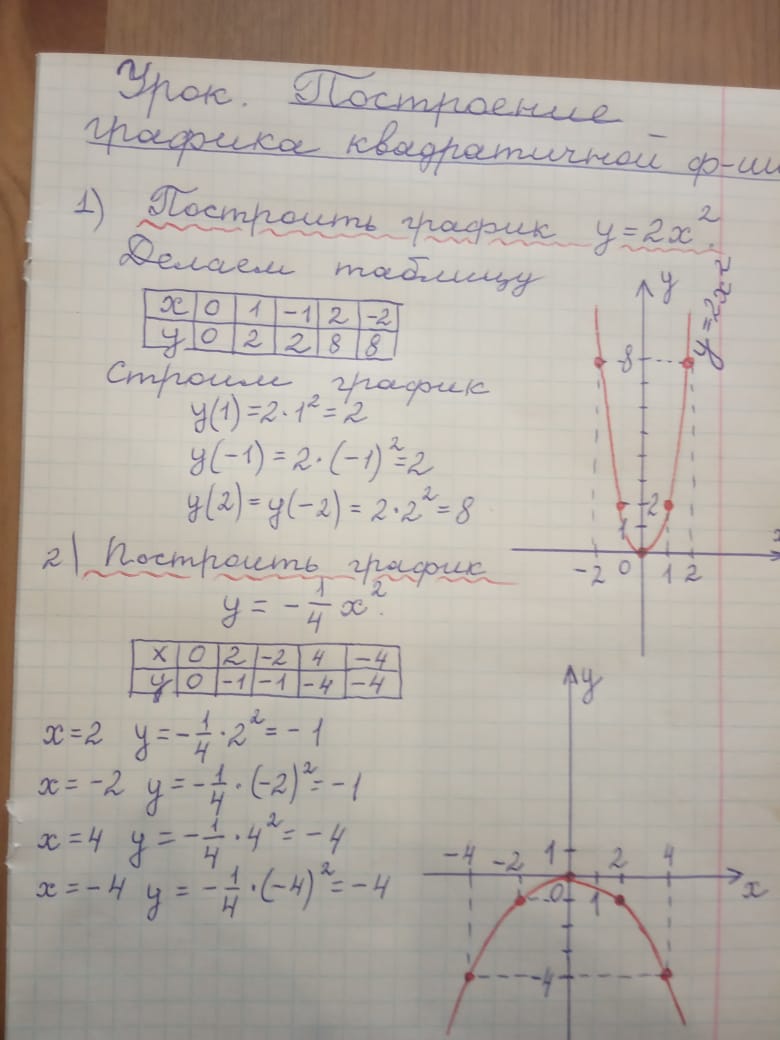 Урок. Построение
графика квадратичной ф-ии
1) Построить график y=2x².
Делаем таблицу
x 0 1 -1 2 -2
y 0 2 2 8 8
Строим график
y(1)=2·1²=2
y(-1)=2·(-1)²=2
y(2)=y(-2)=2·2²=8
y
y=2x²
8
2
1
-2 0 1 2
x
2) Построить график
y = -1/4 x².
x 0 2 -2 4 -4
y 0 -1 -1 -4 -4
x=2 y=-1/4·2²=-1
x=-2 y=-1/4·(-2)²=-1
x=4 y=-1/4·4²=-4
x=-4 y=-1/4·(-4)²=-4
y
-4 -2 1 2 4
0 1
x
-4